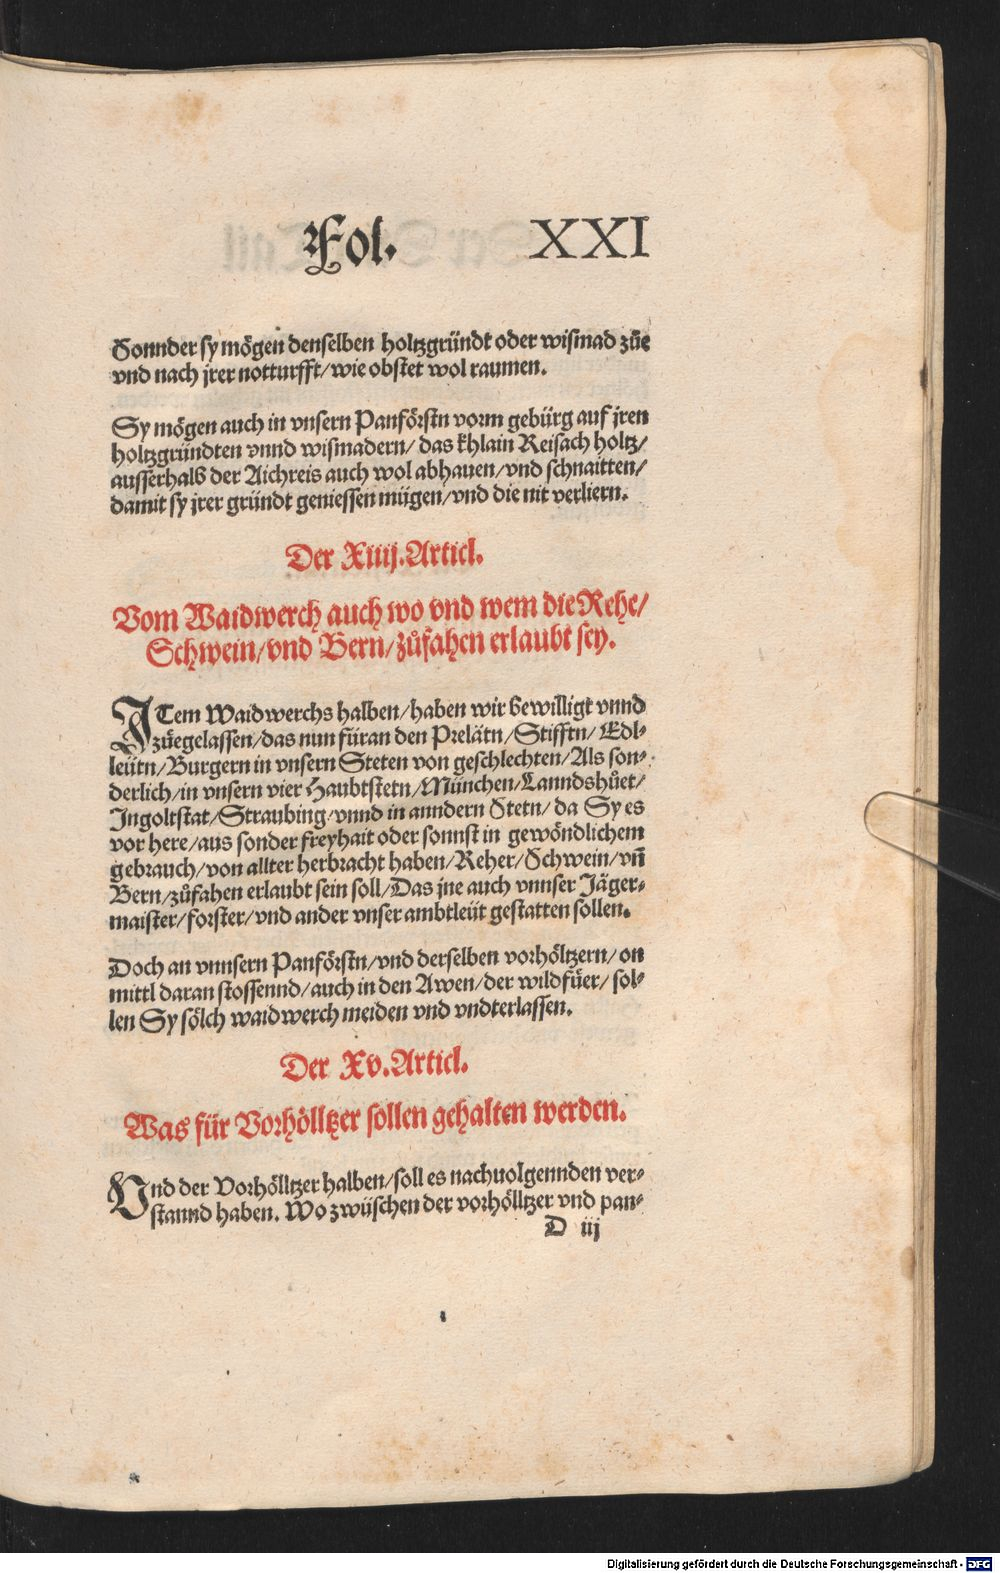 Fol. XXI
Sonnder sy mögen denselben holtzgründt oder wismad zůe
vnd nach jrer notturfft/wie obstet wol raumen.
Sy mögen auch in vnsern Panförstn vorm gebürg auf jren
holtzgründten vnnd wismadern/ das khlain Reisach holtz/
ausserhalb der Aichreis auch wol abhauen/vnd schnaitten/
damit sy jrer gründt geniessen mügen/vnd die nit verliern.
Der Xiiij.Articl.
Vom Waidwerch auch wo vnd wem die Rehe/
Schwein/vnd Bern/zůfahen erlaubt sey.
ITem Waidwerchs halben/haben wir bewilligt vnnd
zůegelassen/das nun füran den Prelätn/Stifftn/ Edl-
leütn/Burgern in vnsern Steten von geschlechten/Als son-
derlich/in vnsern vier Haubtstetn/München/Lanndshůet/
Ingoltstat/Straubing/vnnd in anndern Stetn/ da Sy es
vor here/aus sonder freyhait oder sonnst in gewöndlichem
gebrauch/von allter herbracht haben/Reher/Schwein/vn̄
Bern/zůfahen erlaubt sein soll/Das jne auch vnnser Jäger-
maister/forster/vnd ander vnser ambtleüt gestatten sollen.
Doch an vnnsern Panförstn/vnd derselben vorhöltzern/on
mittl daran stossennd/auch in den Awen/der wildfüer/ sol-
len Sy sölch waidwerch meiden vnd vndterlassen.
Der Xv.Articl.
Was für Vorhölltzer sollen gehalten werden.
Vnd der Vorhölltzer halben/soll es nachuolgennden ver-
stannd haben. Wo zwüschen der vorhölltzer vnd pan-
D iij
Digitalisierung gefördert durch die Deutsche Forschungsgemeinschaft - DFG